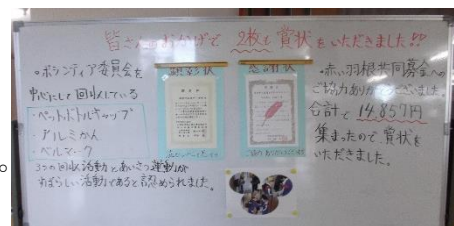 皆さんのおかげで 2枚も賞状をいただきました!!
。ボランティア委員会を
中心にして回収している
・ペットボトルキャップ
・アルミかん
・ベルマーク
3つの回収活動とあいさつ運動が
すばらしい活動であると認められました。
感謝状
。赤い羽根共同募金への
ご協力ありがとうございました。
合計で 14,857円
集まったので、賞状を
いただきました。